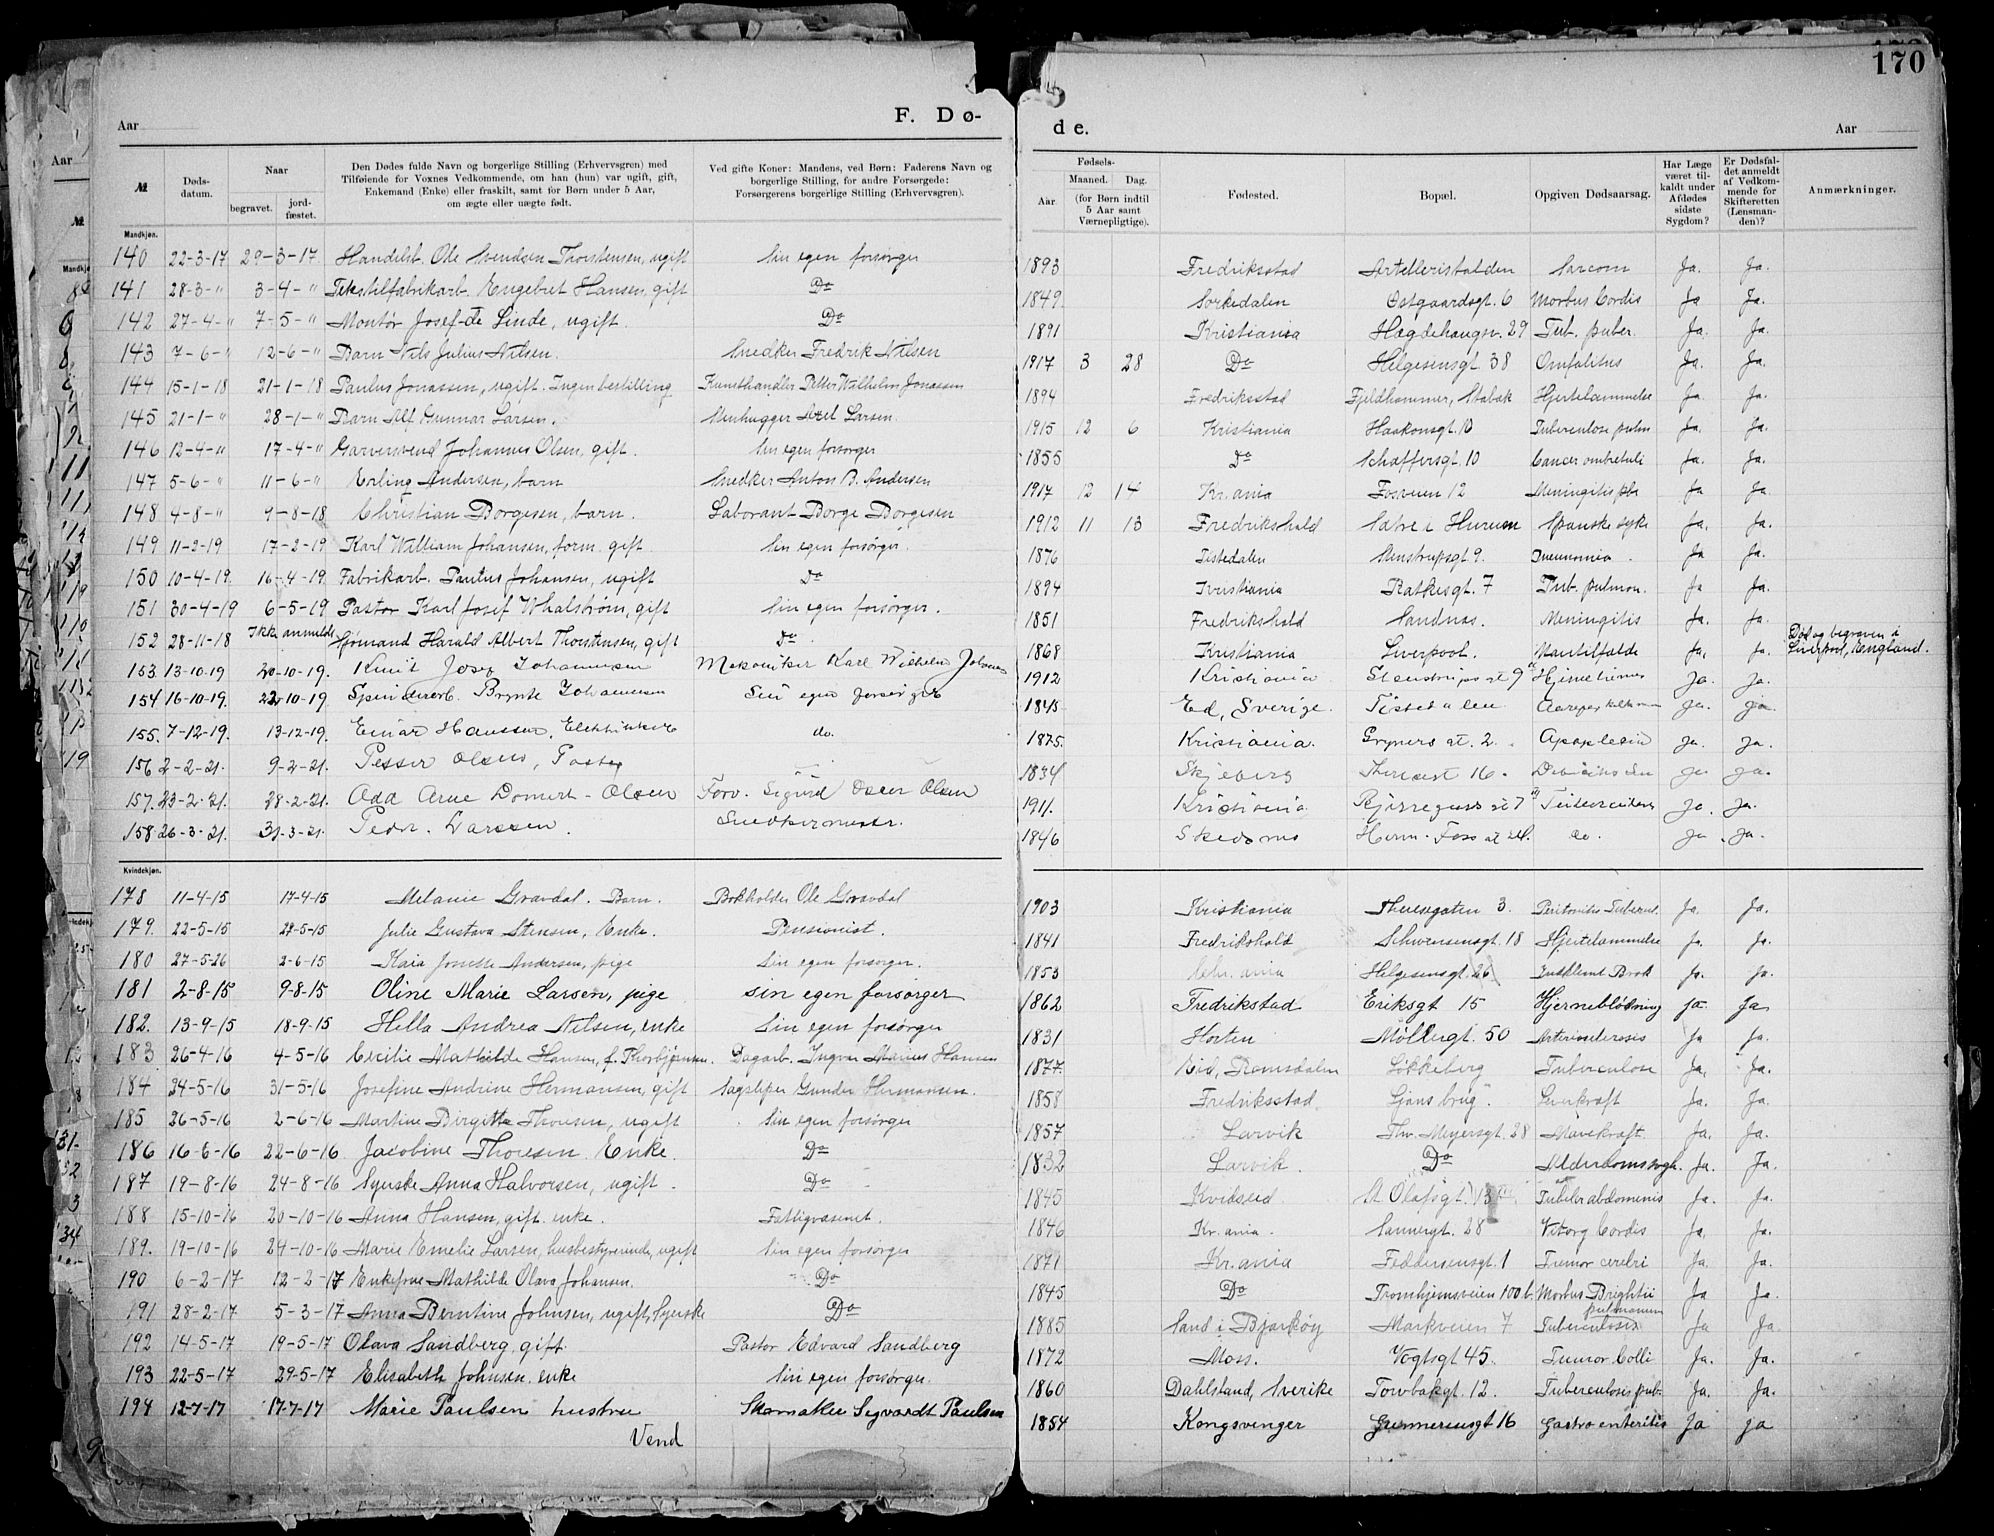 170
Aar F. Dø-
de. Aar
№ Døds-datum. Naar begravet. jord-fæstet. Den Dødes fulde Navn og borgerlige Stilling (Erhvervsgren) med Tilføiende for Voxnes Vedkommende, om han (hun) var ugift, gift, Enkemand (Enke) eller fraskilt, samt for Børn under 5 Aar, om ægte eller uægte født. Ved gifte Koner: Mandens, ved Børn: Faderens Navn og borgerlige Stilling, for andre Forsørgede: Forsørgerens borgerlige Stilling (Erhvervsgren). Fødsels- Aar Maaned. Dag. (for Børn indtil 5 Aar samt Værnepligtige). Fødested. Bopæl. Opgiven Dødsaarsag. Har Læge været til-kaldt under Afdødes sidste Sygdom? Er Dødsfal-det anmeldt af Vedkom-mende for Skifteretten (Lensman-den)? Anmærkninger.
Mandkjøn.
140 22-3-17 29-3-17 Handelsb. Ole Svendsen Thorstensen, ugift Sin egen forsørger 1893 Fredriksstad Artilleristalden Sarcom Ja. Ja.
141 28-3-" 3-4-" Tekstilfabrikarb. Engebret Hansen, gift Do 1849 Sørkedalen Østgaardsgt. 6 Morbus Cordis Ja Ja.
142 27-4-" 7-5-" Montør Josef de Linde, ugift Do 1891 Kristiania Hægdehaugsv. 29 Tub. pulm. Ja. Ja.
143 7-6-" 12-6-" Barn Nils Julius Nilsen. Snedker Fredrik Nilsen 1917 3 28 Do Helgesensgt 38 Omfalitus Ja. Ja.
144 15-1-18 21-1-18 Paulus Jonassen, ugift. Ingen bestilling Kunsthandler Petter Wilhelm Jonassen 1894 Fredriksstad Fjeldhammer, Stabæk Hjertelammelse Ja. Ja.
145 21-1-" 28-1-" Barn Alf Gunnar Larsen. Stenhugger Axel Larsen 1915 12 6 Kristiania Haakonsgt. 10 Tuberculose pulm Ja. Ja.
146 12-4-" 17-4-" Garversvend Johannes Olsen, gift. Sin egen forsørger 1855 Do Schaffersgt. 10 Cancer Ja. Ja.
147 5-6-" 11-6-" Erling Andersen, barn Snedker Anton B. Andersen 1917 12 14 Kr.ania Fosveien 12 Meningitis Ja Ja.
148 4-8-" 9-8-18 Christian Borgesen, barn. Laborant Borge Borgesen 1912 11 13 Fredrikshald Sætre i Hurum Spanske syke Ja. Ja.
149 11-2-19 17-2-19 Karl William Johansen, form. gift Sin egen forsørger. 1876 Tistedalen Stenstrupsgt 9. Pneumonia. Ja Ja.
150 10-4-19. 16-4-19. Fabrikarb. Paulus Johansen, ugift Do 1894 Kristiania Ratkesgt. 7 Tub. pulmon. Ja Ja.
151 30-4-19 6-5-19 Pastor Karl Josef Whalstrøm, gift Sin egen forsørger. 1851 Fredrikshald Sandnæs. Meningitis Ja. Ja.
152 28-11-18 Ikke anmeldt Sjømand Harald Albert Thorstensen, gift Do. 1868 Kristiania Liverpool. Ja. Ja. Død og begraven i Liverpool, England.
153. 13-10-19 20-10-19. Knut Josef Johannesen Mekaniker Karl Wilhelm 1912 Kristiania Stenstrups gt 9 Ja. Ja.
154 16-10-19. 22-10-19 Spinderarb. Brynte Johannesen Sin egen forsørger 1845 Ed, Sverige. Tistedalen Ja. Ja
155. 7-12-19. 13-12-19. Einar Hanssen, Elektriker do. 1875. Kristiania. Gryners gt. 2. Apoplexia Ja. Ja.
156 2-2-21. 9-2-21. Petter Olsen, 1834 Skjeberg Theresesgt 16. Ja. Ja.
157. 23-2-21. 28-2-21. Odd Arne Domert-Olsen Forv. Sigurd Olsen 1911. Kristiania Bjerregaards gt 7 Ja. Ja.
158. 26-3-21. 31-3-21. Peder Larssen. Snedkermester. 1846 Skedsmo Herm. Foss gt 24. do. Ja Ja.
Kvindekjøn.
178 11-4-15 17-4-15 Melanie Gravdal. Barn. Bokholder Ole Gravdal 1903 Kristiania Theresegaten 3. Peritonitis Tubercul. Ja. Ja.
179. 22-5-15 29-5-15 Julie Gustava Stensen, Enke. Pensionist. 1841 Fredrikshald Schwensensgt. 18 Hjertelammelse Ja. Ja.
180 27-5-26 2-6-15 Kaia Josette Andersen, pige Sin egen forsørger. 1853 Chr.ania Helgesensgt. 26 Indklemt Brok Ja. Ja.
181 2-8-15 9-8-15 Oline Marie Larsen, pige sin egen forsørger 1862 Fredrikstad Eriksgt 15 Hjerneblødning Ja Ja
182. 13-9-15 18-9-15 Hella Andrea Nilsen, enke Sin egen forsørger 1831 Horten Møllergt. 50 Arteriosclerosis Ja Ja.
183 26-4-16 4-5-16 Cecilie Mathilde Hansen, f. Thorbjørnsen. Dagarb. Ingvar Marius Hansen 1877. Eid, Romsdalen Løkkeberg Tuberculose Ja. Ja.
184 24-5-16 31-5-16 Josefine Andrine Hermansen, gift Sagsliper Gunder Hermansen. 1858 Fredriksstad Ljans brug. Leverkræft Ja. Ja.
185 26-5-16 2-6-16 Martine Birgitte Thoresen, ugift Sin egen forsørger 1857 Larvik Thv. Meyersgt. 28 Mavekræft. Ja. Ja.
186 16-6-16 22-6-16 Jacobine Thoresen Enke. Do 1832 Larvik. Do Alderdomssvagh. Ja. Ja.
187 19-8-16 24-8-16 Syerske Anna Halvorsen, ugift. Do 1845 Kvidseid St. Olafsgt. 13 Ja. Ja.
188 15-10-16 20-10-16 Anna Hansen, gift. enke. Fattigvæsenet. 1846 Kr.ania. Sannergt. 28 Cordis Ja. Ja.
189. 19-10-16 24-10-16 Marie Emelie Larsen, husbestyrerinde, ugift Sin egen forsørger 1871 Kr.ania Feddersensgt. 1 Tumor cerebri Ja. Ja.
190 6-2-17 12-2-17 Enkefrue Mathilde Olava Johansen. Do 1845 Do Tromhjemsveien 100 b. Morbus Brightii Ja Ja.
191 28-2-17 5-3-17 Anna Berntine Johnsen, ugift, Syerske Do 1885 Sand i Bjarkøy Markveien 7 Tuberculosis pulmonum Ja Ja.
192 14-5-17 19-5-17 Olava Sandberg, gift. Pastor Edvard Sandberg 1872 Moss. Vogtsgt 45. Tumor Colli Ja. Ja.
193 22-5-17 29-5-17 Elisabeth Johnsen, enke Sin egen forsørger. 1860 Dahlsland, Sverike Torvbakgt. 12. Tuberculosis pul. Ja. Ja.
194 12-7-17 17-7-17 Marie Paulsen hustru Skomaker Sigvardt Paulsen 1854 Kongsvinger Gunnerusgt 16 Gastro enteritis Ja Ja
Vend